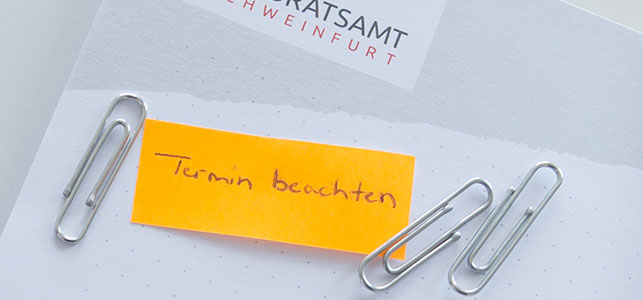 DRATSAMT
CHWEINFURT
Termin beachten